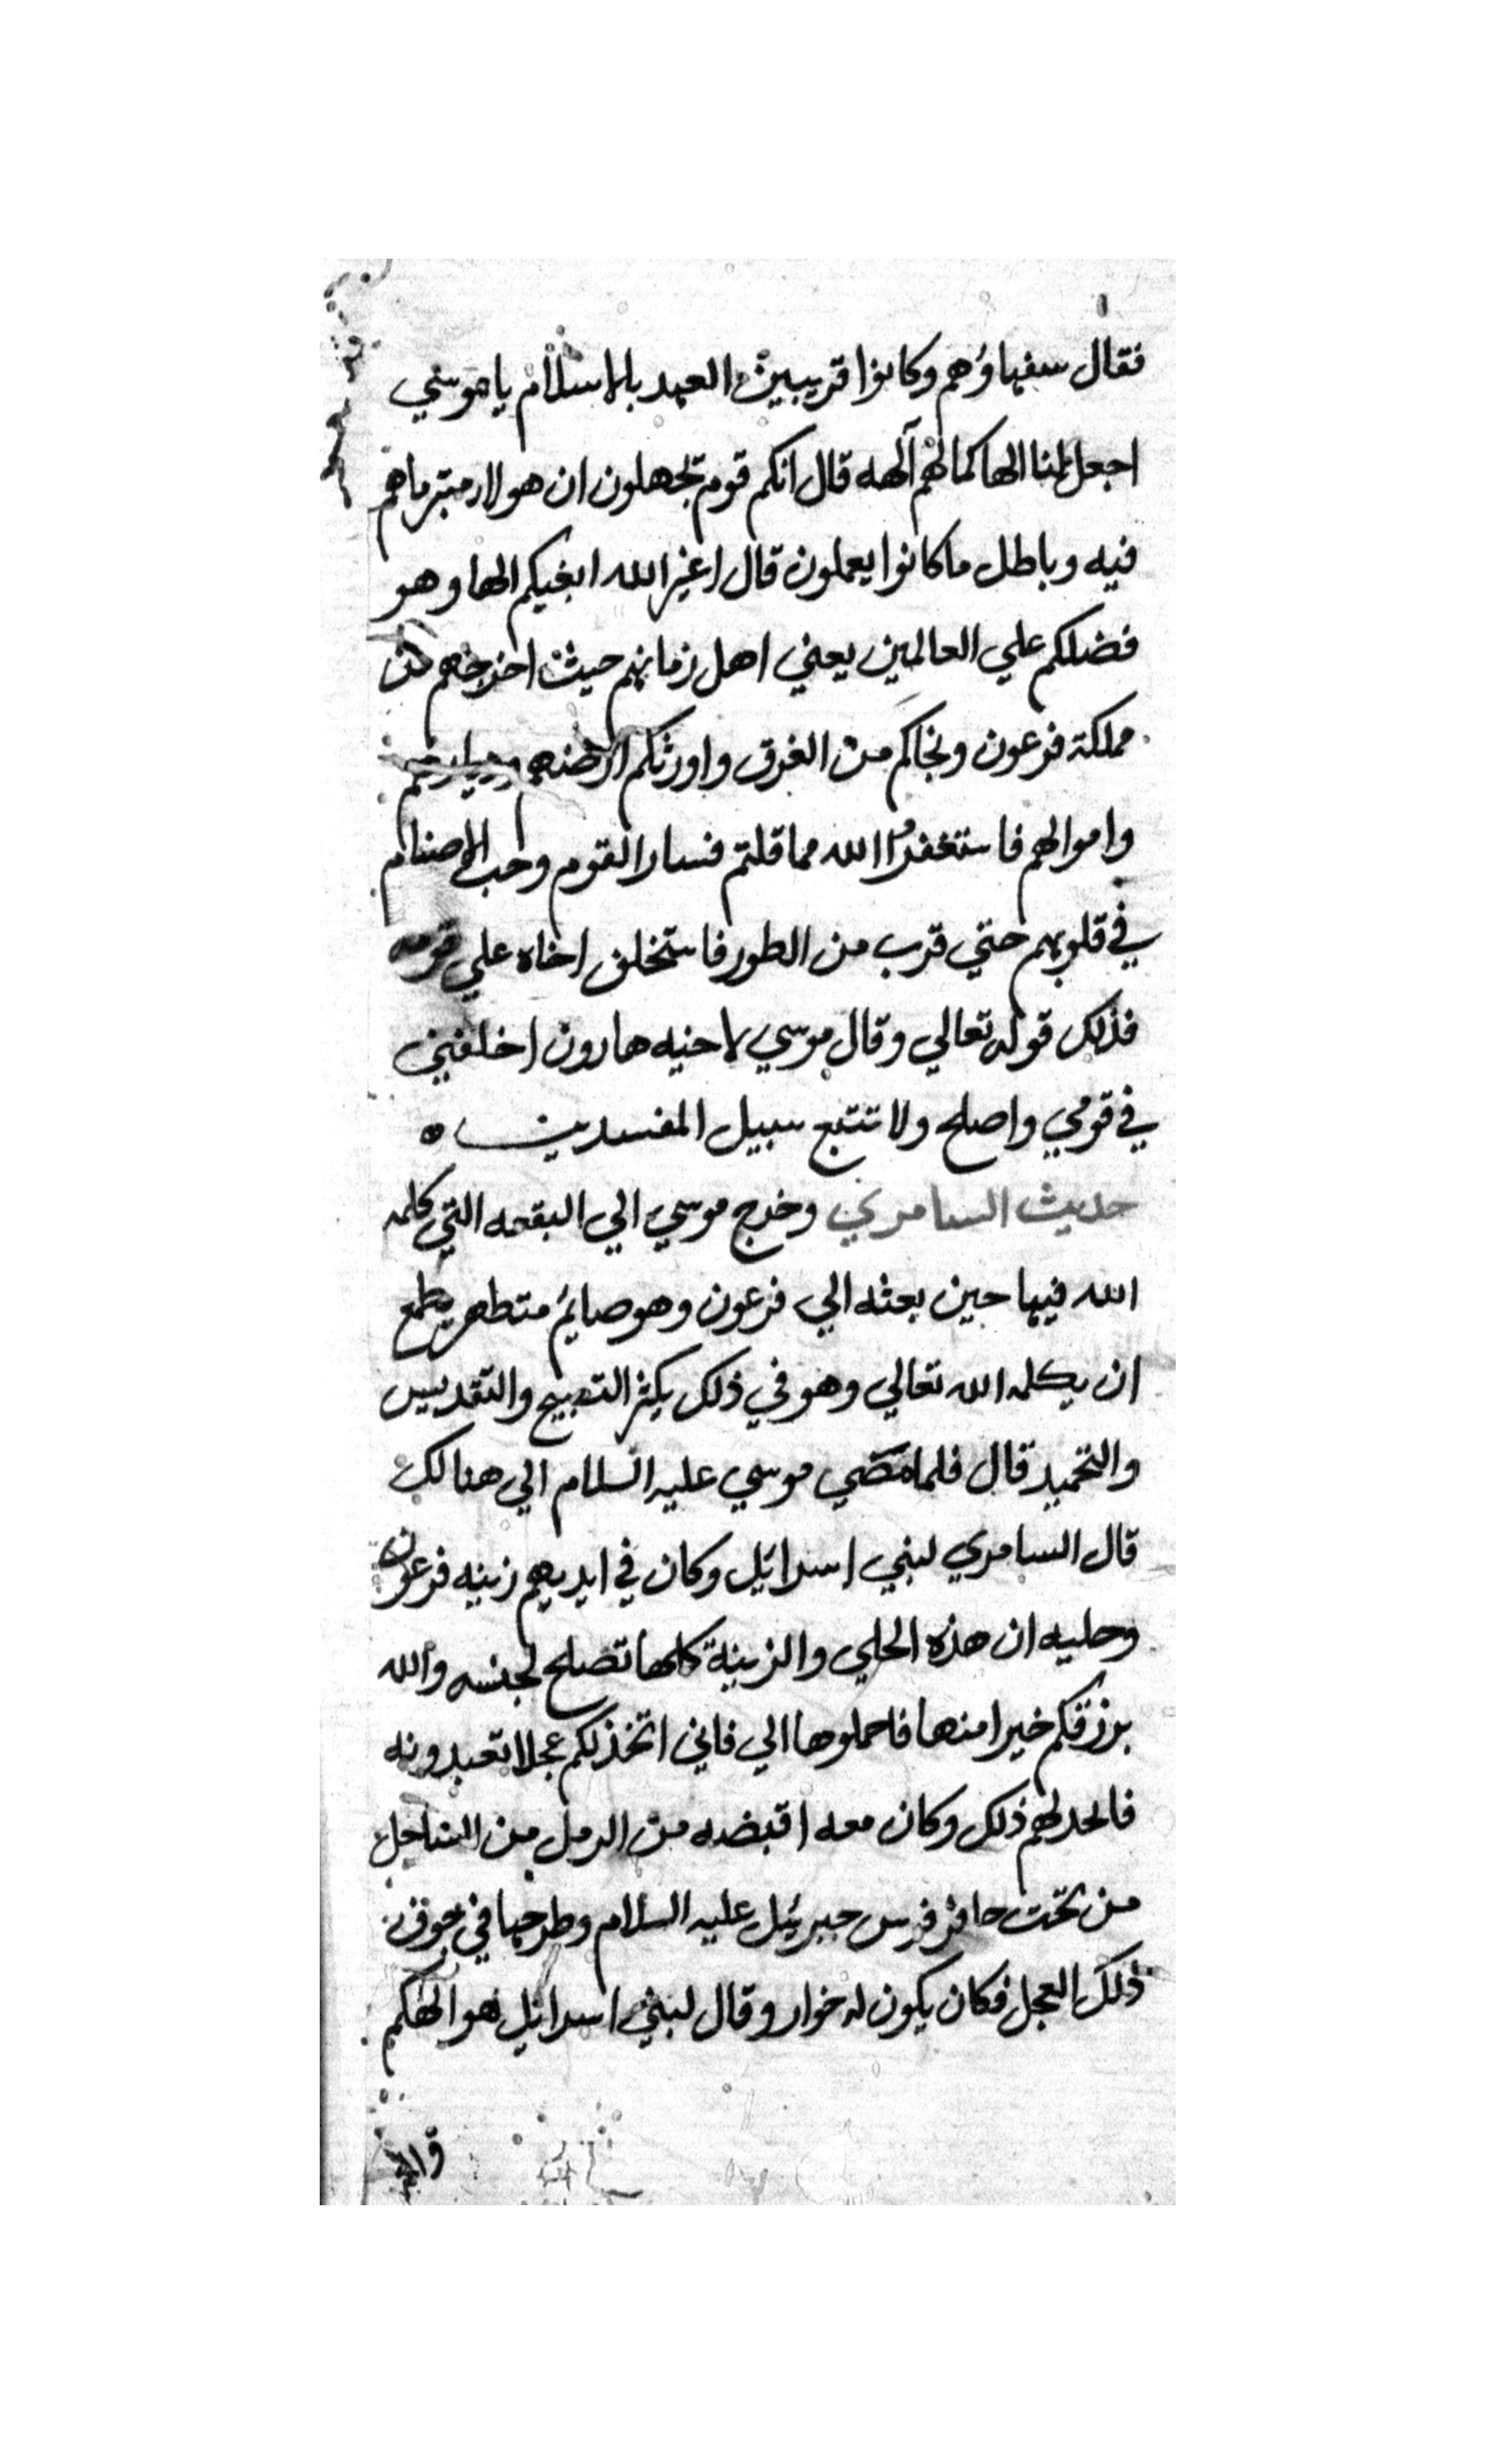 فقال سفهاؤهم وكانوا قريبين العهد بالاسلام يا موسي
اجعل لنا الها كما لهم آلهه قال انكم قوم تجهلون ان هولاء متبر ما هم
فيه وباطل ما كانوا يعملون قال اغير الله ابغيكم الها وهو
فضلكم علي العالمين يعني اهل زمانهم حيث اخرجهم من
مملكة فرعون ونجاكم من الغرق واورثكم ارضهم وديارهم
واموالهم فاستغفروا الله مما قلتم فسار القوم وحب الاصنام
في قلوبهم حتي قرب من الطور فاستخلف اخاه علي قومه
فذلك قوله تعالي وقال موسي لاخيه هارون اخلفني
في قومي واصلح ولا تتبع سبيل المفسدين ه
حديث السامري وخرج موسي الي البقعه التي كلمه
الله فيها حين بعثه الي فرعون وهو صايم متطهر يطمع
ان يكلمه الله تعالي وهو في ذلك يكثر التسبيح والتقديس
والتحميد قال فلما مضي موسي عليه السلام الي هنالك
قال السامري لبني اسرائل وكان في ايديهم زينه فرعون
وحليه ان هذه الحلي والزينة كلها تصلح لجنسه والله
يرزقكم خيرا منها فاحملوها الي فاني اتخذ لكم عجلا تعبدونه
فاتحد لهم ذلك وكان معه اقبضه من الرمل من الساحل
من تحت حافر فرس جبرئيل عليه السلام وطرحها في جوف
ذلك العجل فكان يكون له خوار وقال لبني اسرائل هو الهكم